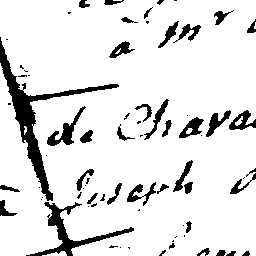 à mr
de Chava
à Joseph